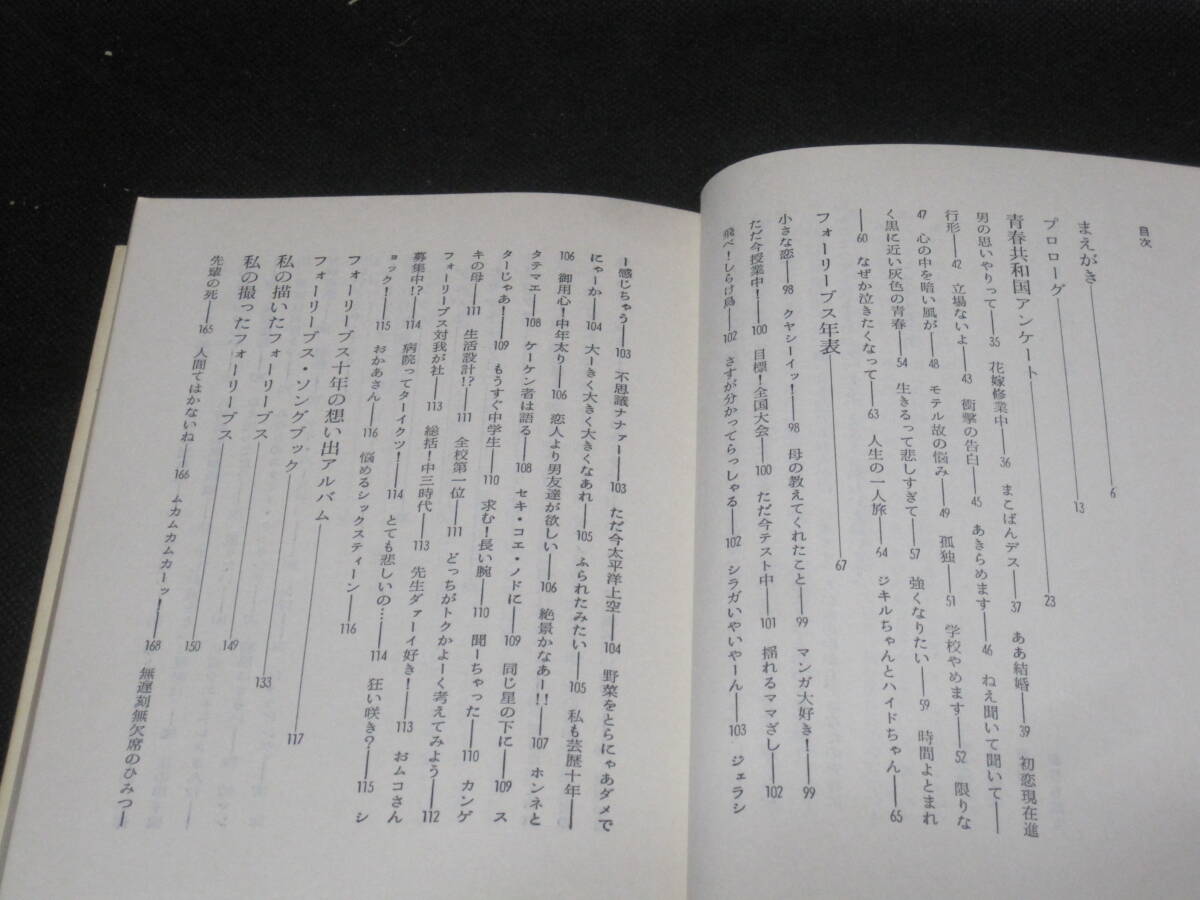 目次
まえがき――6
プロローグ――13
青春共和国アンケート――23
男の思いやりって――35　花嫁修業中――36　まこぱんデス――37　ああ結婚――39　初恋現在進
行形――42　立場ないよ――43　衝撃の告白――45　あきらめます――46　ねえ聞いて聞いて――
47　心の中を暗い風が――48　モテル故の悩み――49　孤独――51　学校やめます――52　限りな
く黒に近い灰色の青春――54　生きるって悲しすぎて――57　強くなりたい――59　時間よとまれ
――60　なぜか泣きたくなって――63　人生の一人旅――64　ジキルちゃんとハイドちゃん――65
フォーリーブス年表――67
小さな恋――98　クヤシーイッ！――98　母の教えてくれたこと――99　マンガ大好き！――99
ただ今授業中！――100　目標！全国大会――100　ただ今テスト中――101　揺れるママざし――102
飛べ！しらけ鳥――102　さすが分かってらっしゃる――102　シラガいやいやーん――103　ジェラシ
ー感じちゃう――103　不思議ナナァー――103　ただ今太平洋上空――104　野菜をとらにゃあダメで
にゃーか――104　大ーきく大きく大きくなあれ――105　ふられたみたい――105　私も芸歴十年――
106　御用心！中年太り――106　恋人より男友達が欲しい――106　絶景かなあー!!――107　ホンネと
タテマエ――108　ケーケン者は語る――108　セキ・コエ・ノドに――109　同じ星の下に――109　ス
ターじゃあ！――109　もうすぐ中学生――110　求む！長い腕――110　聞ーちゃった――110　カンゲ
キの母――111　生活設計!?――111　全校第一位――111　どっちがトクかよーく考えてみよう――112
フォーリーブス対我が社――113　総括！中三時代――113　先生ダァーイ好き！――113　おムコさん
募集中!?――114　病院ってターイクツ！――114　とても悲しいの…――114　狂い咲き？――115　シ
ョック！――115　おかあさん――116　悩めるシックスティーン――116
フォーリーブス十年の想い出アルバム――117
フォーリーブス・ソングブック――133
私の描いたフォーリーブス――149
私の撮ったフォーリーブス――150
先輩の死――165　人間てはかないね――166　ムカムカムカーッ！――168　無遅刻無欠席のひみつ―